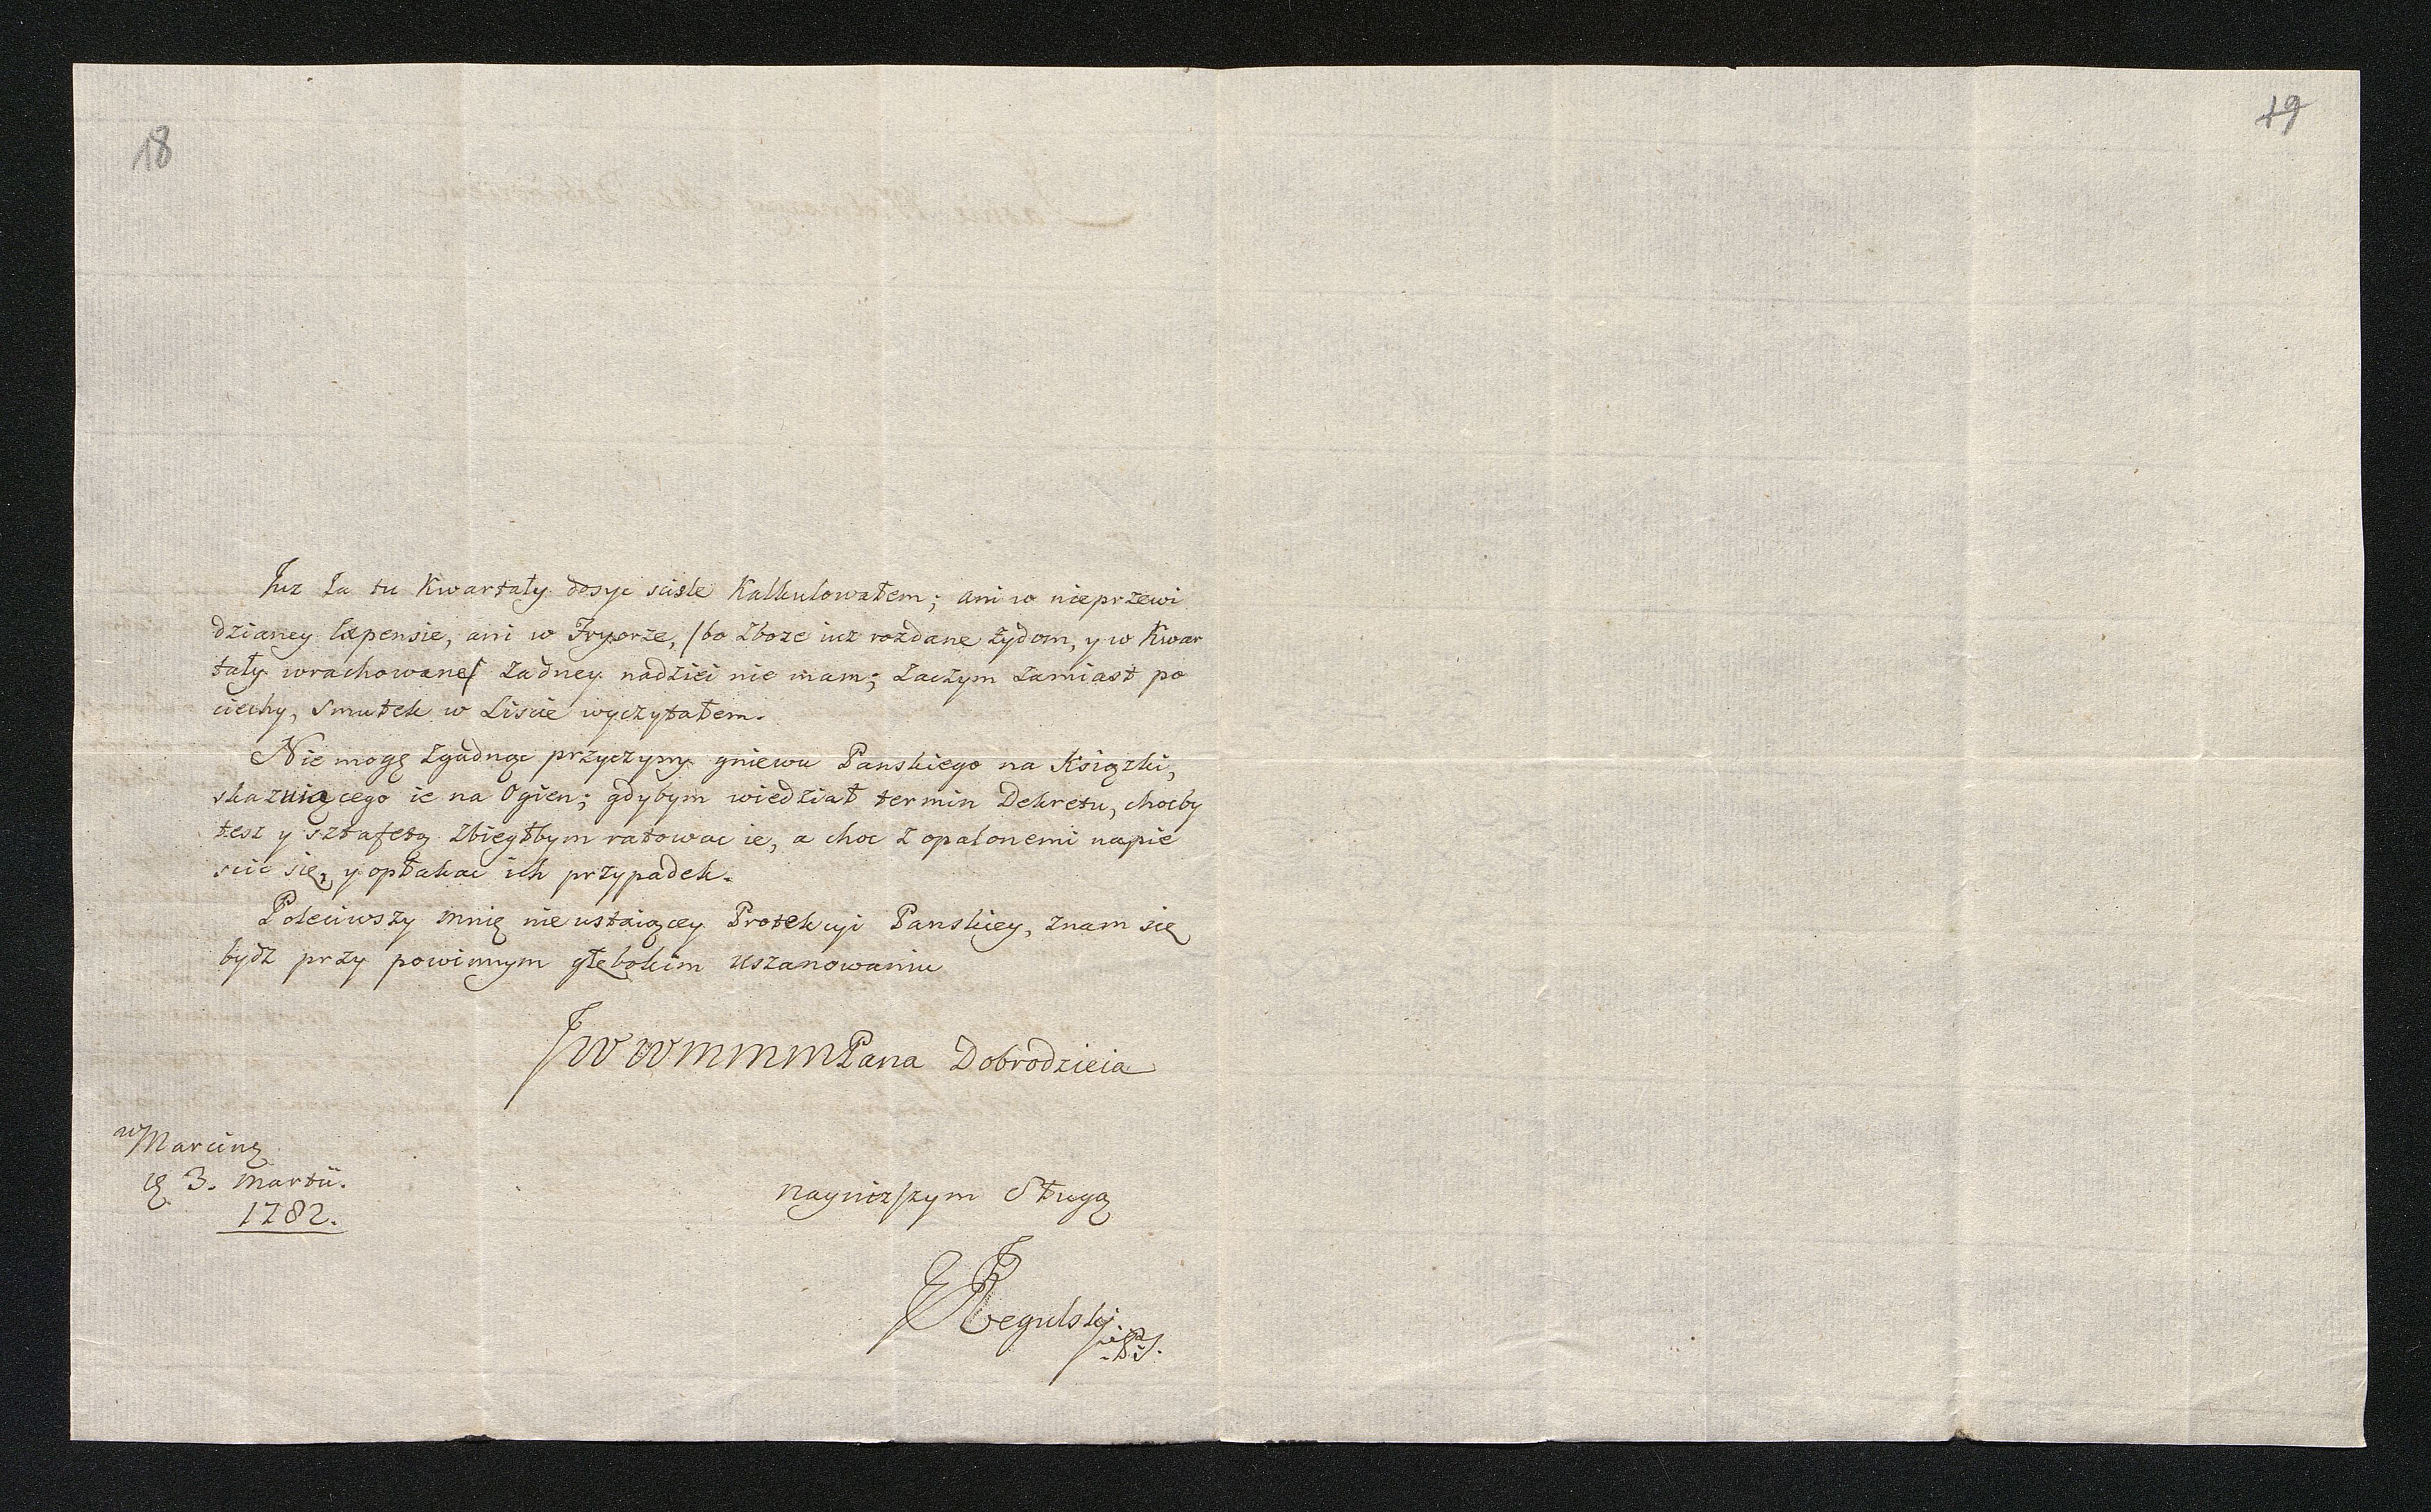 18
19
Juz Ja tu Kwartały dosyc scisle Kalkulowałem; ani w nieprzewi
dzianey Expensie, ani w Fryorze, /bo zboze iuz rozdane żydom, y w Kwar
tały wrachowane/ żadney nadziei nie mam; zaczym zamiast po
ciechy, smutek w Liscie wyczytałem.
Nie mogę zgadnąc przyczyny gniewu Panskiego na Ksiązki,
skazuiącego ie na Ogien; gdybym wiedział termin Dekretu, chocby
tesz y sztafetą zbiegłbym ratowac ie, a choc z opalonemi napie
scic się, y opłakac ich przypadek.
Poleciwszy mnię nieustaiącey Protekcyi Panskiey, znam się
bydz przy powinnym głębokim uszanowaniu
JWWMMMPana Dobrodzieia
w Marcinę
3. Martii.
1782.
nayniższym Sługą
Regulski